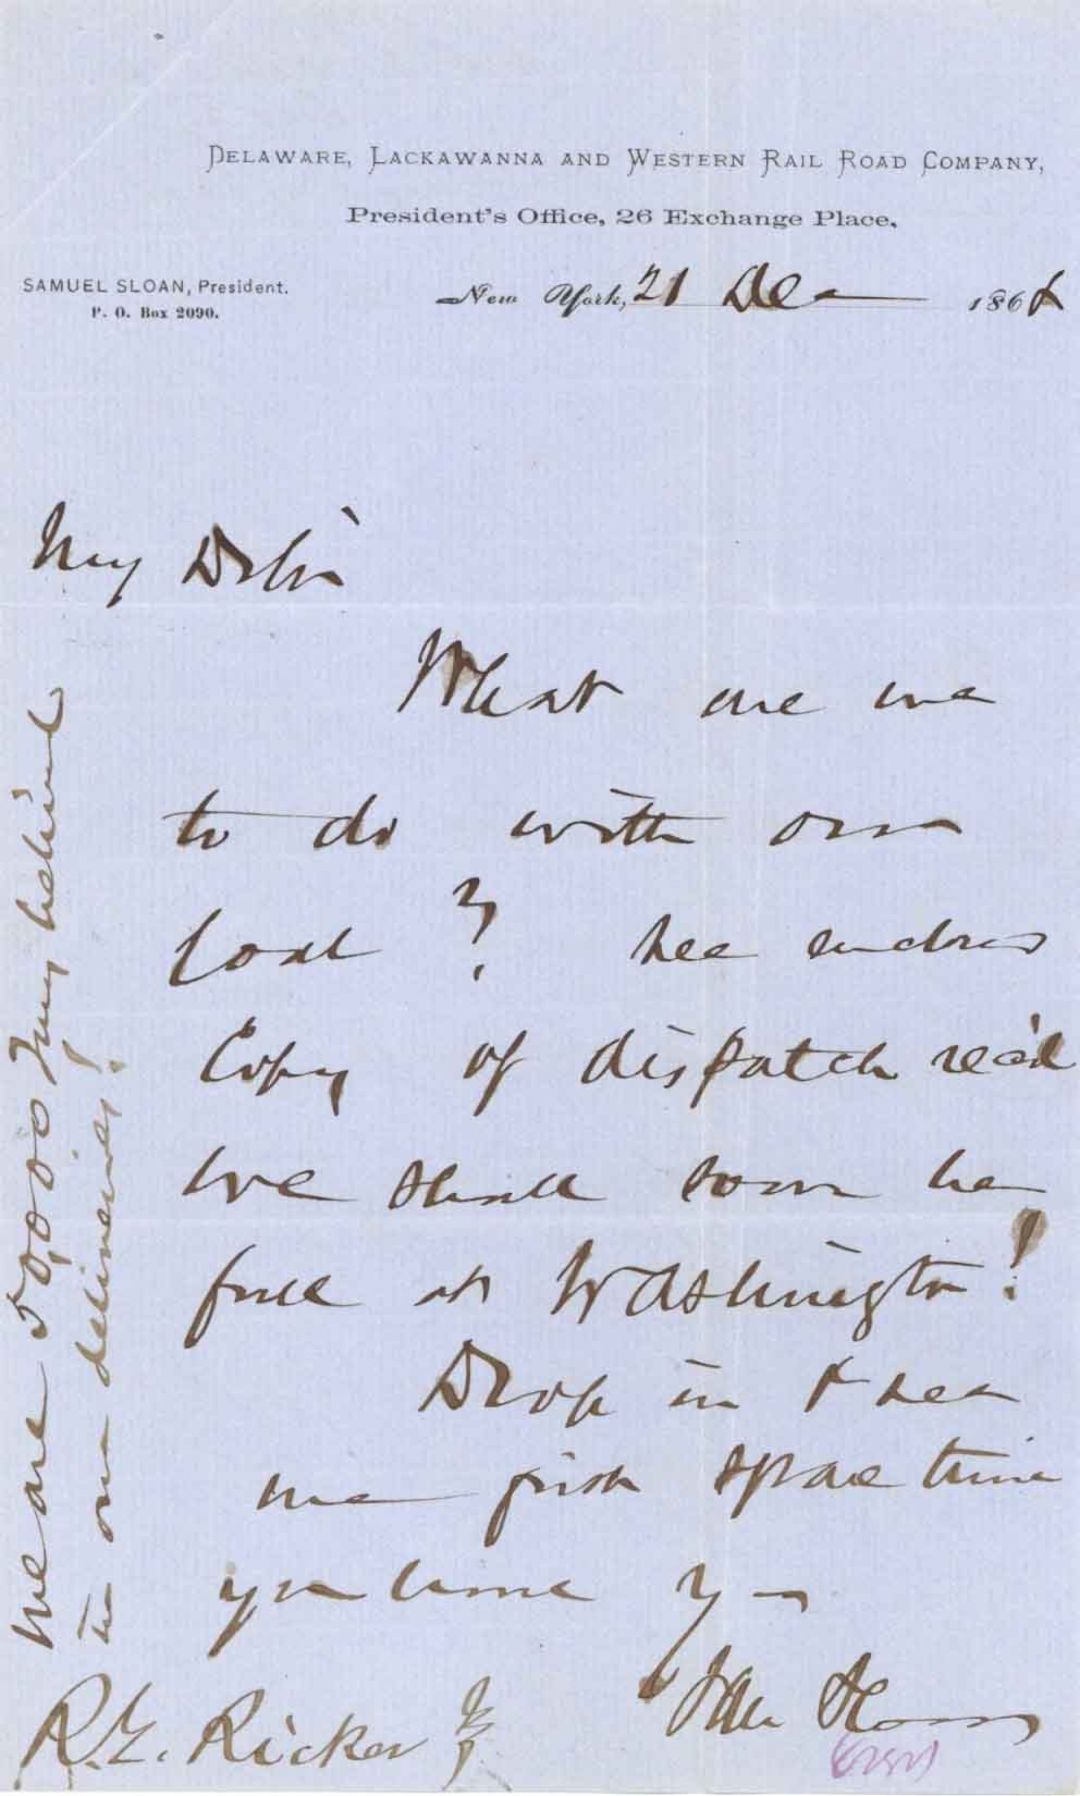 DELAWARE, LACKAWANNA AND WESTERN RAIL ROAD COMPANY,
President's Office, 26 Exchange Place,
SAMUEL SLOAN, President.
P. O. Box 2090.
New York, 21 Dec 186
My D Sir
What are we
to do with our
Coal? See enclosed
Copy of dispatch rec'd
We shall soon be
full at Washington!
Drop in & see
me first spare time
you have Y
Sam Sloan
R. E. Ricker
We are 50,000 Tons behind
in our deliveries!